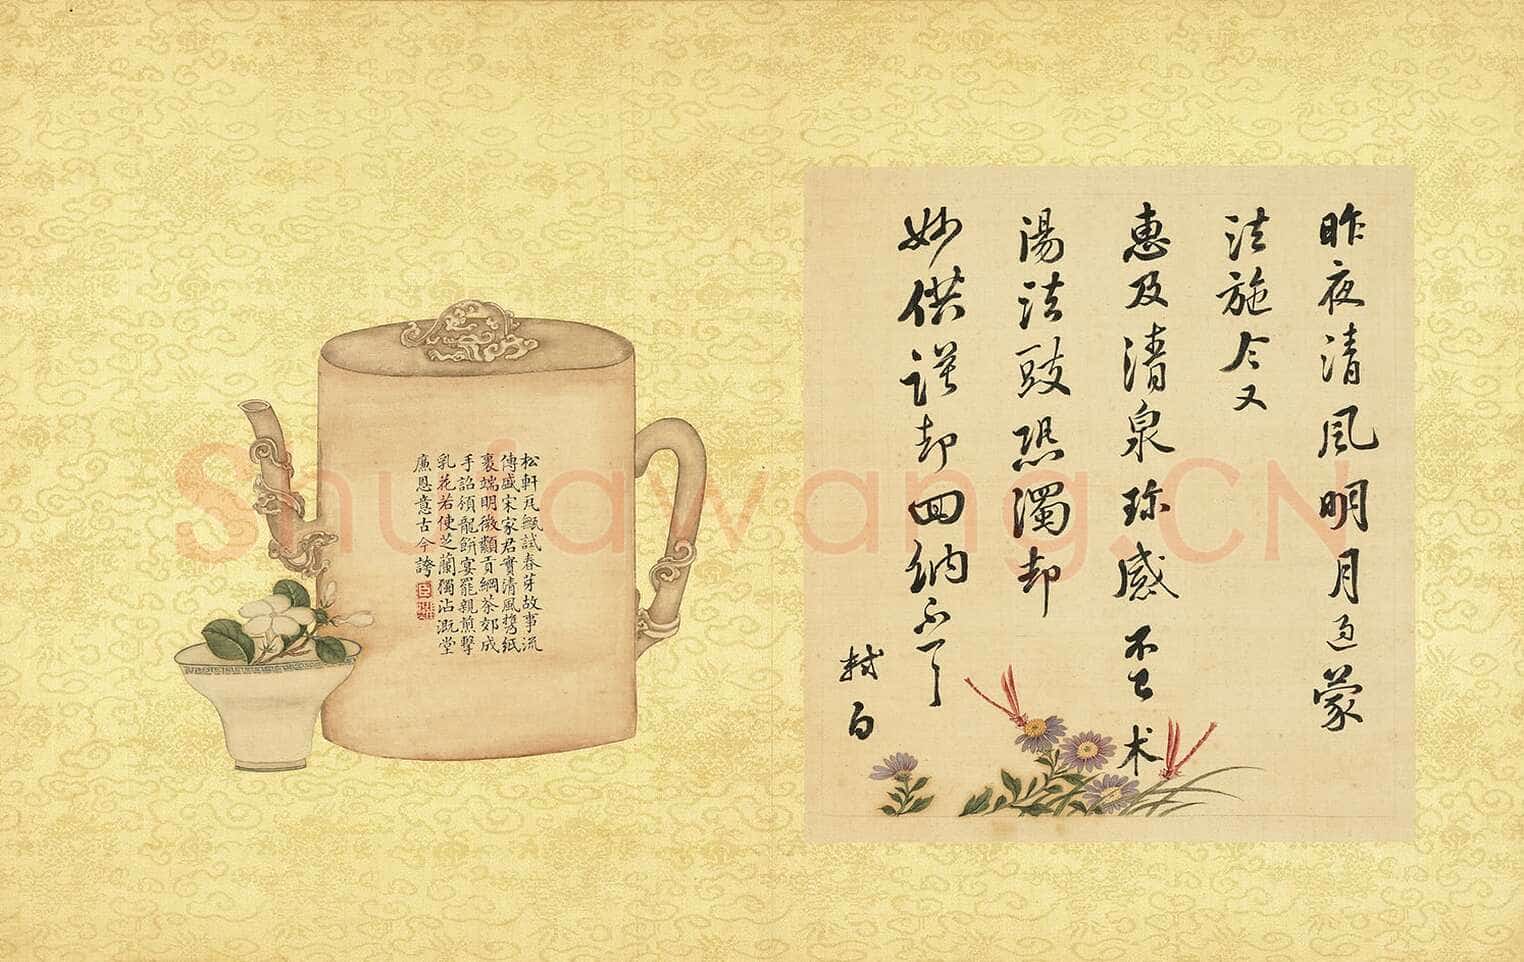 昨夜清風明月過蒙
法施今又
惠及清泉珍感不已术
湯法豉恐濁却
妙供謹却回納不
軾白
松軒瓦甌試春芽故事流
傳盛宋家君實清風攜紙
裏端明貢綱茶郊成
手詔頒龍餅宴罷親煎擊
乳花若使芝蘭獨沾溉堂
廉恩意古今誇
臣
Shufawang.CN